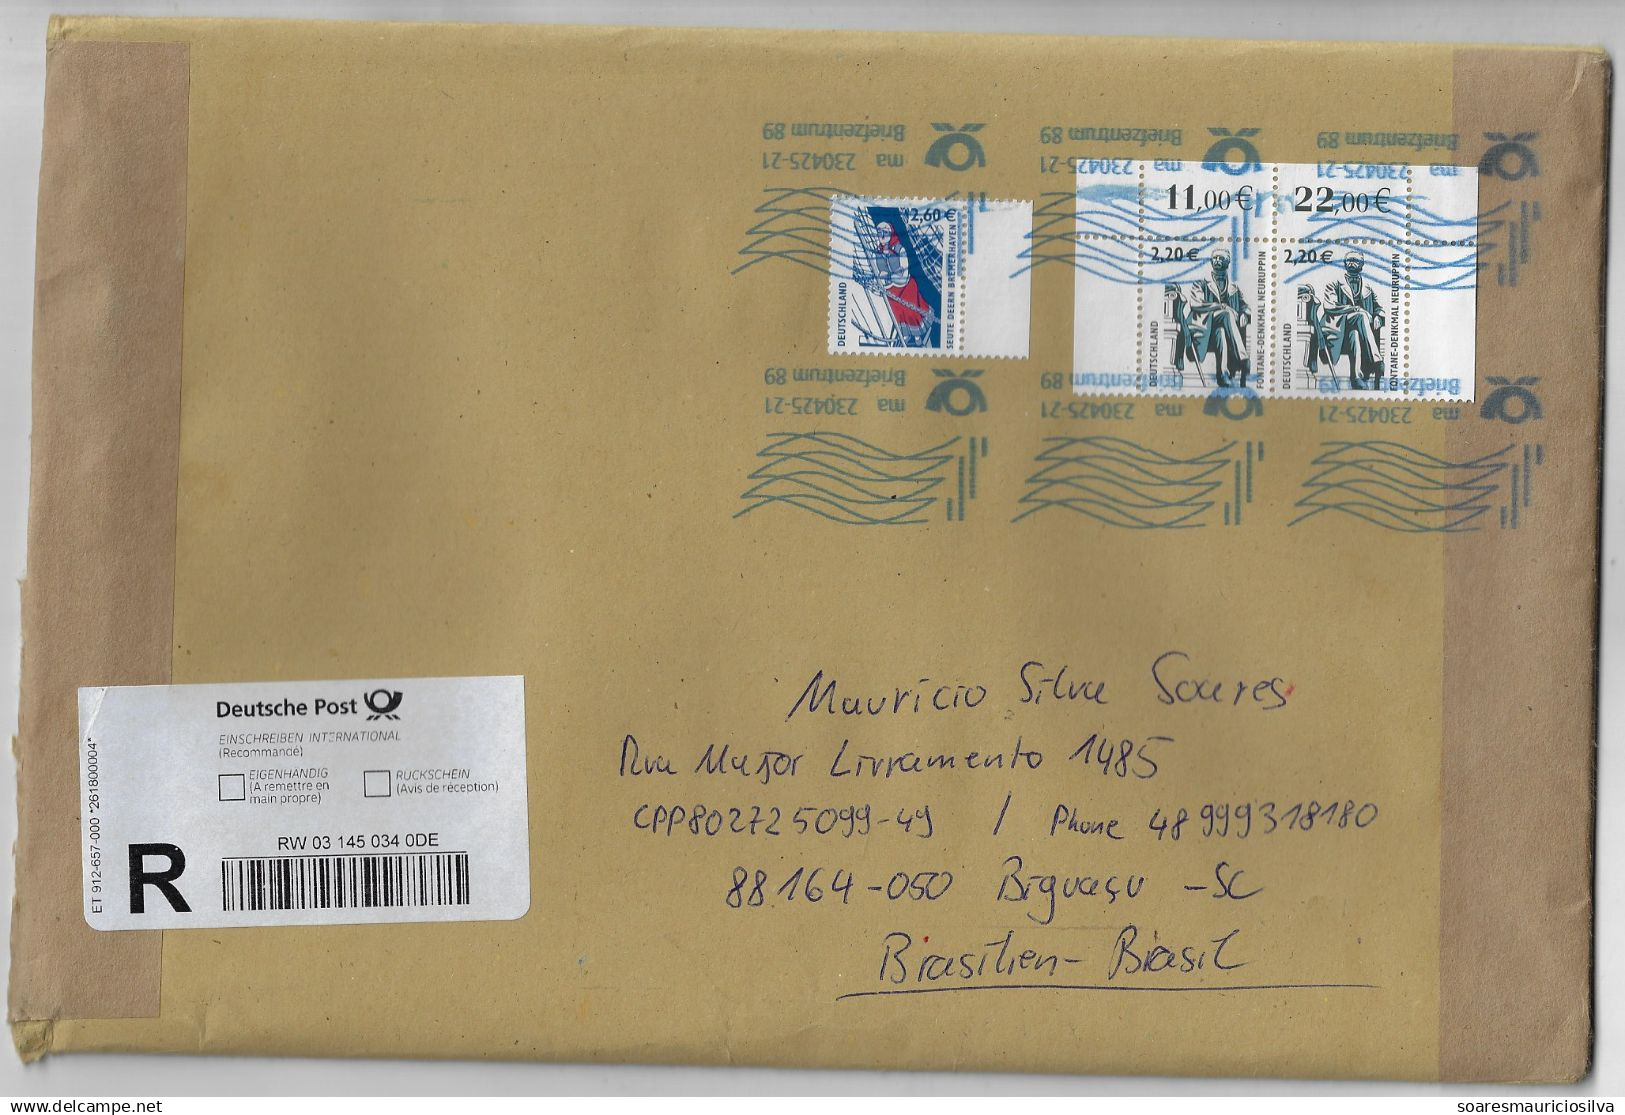 Briefzentrum 89
ma 230425-21
Briefzentrum 89
ma 230425-21
Briefzentrum 89
ma 230425-21
2,60 €
DEUTSCHLAND
SEUTE DEERN BREMERHAVEN
11,00 €
22,00 €
2,20 €
DEUTSCHLAND
FONTANE-DENKMAL NEURUPPIN
2,20 €
DEUTSCHLAND
FONTANE-DENKMAL NEURUPPIN
Briefzentrum 89
ma 230425-21
Briefzentrum 89
ma 230425-21
Briefzentrum 89
ma 230425-21
Mauricio Silva Soares
Rua Major Livramento 1485
CPP802725099-49 / Phone 48 999318180
88164-050 Biguaçu -SC
Brasilien - Brasil
Deutsche Post
EINSCHREIBEN INTERNATIONAL
(Recommandé)
EIGENHÄNDIG
(A remettre en
main propre)
RÜCKSCHEIN
(Avis de réception)
RW 03 145 034 0DE
R
ET 912-657-000 *261800004*
soaresmauriciosilva